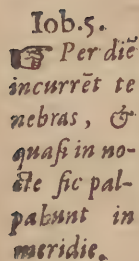 Iob.5.
☞ Per diē
incurrēt te
nebras, &
quasi in no-
cte sic pal-
pabunt in
meridie.